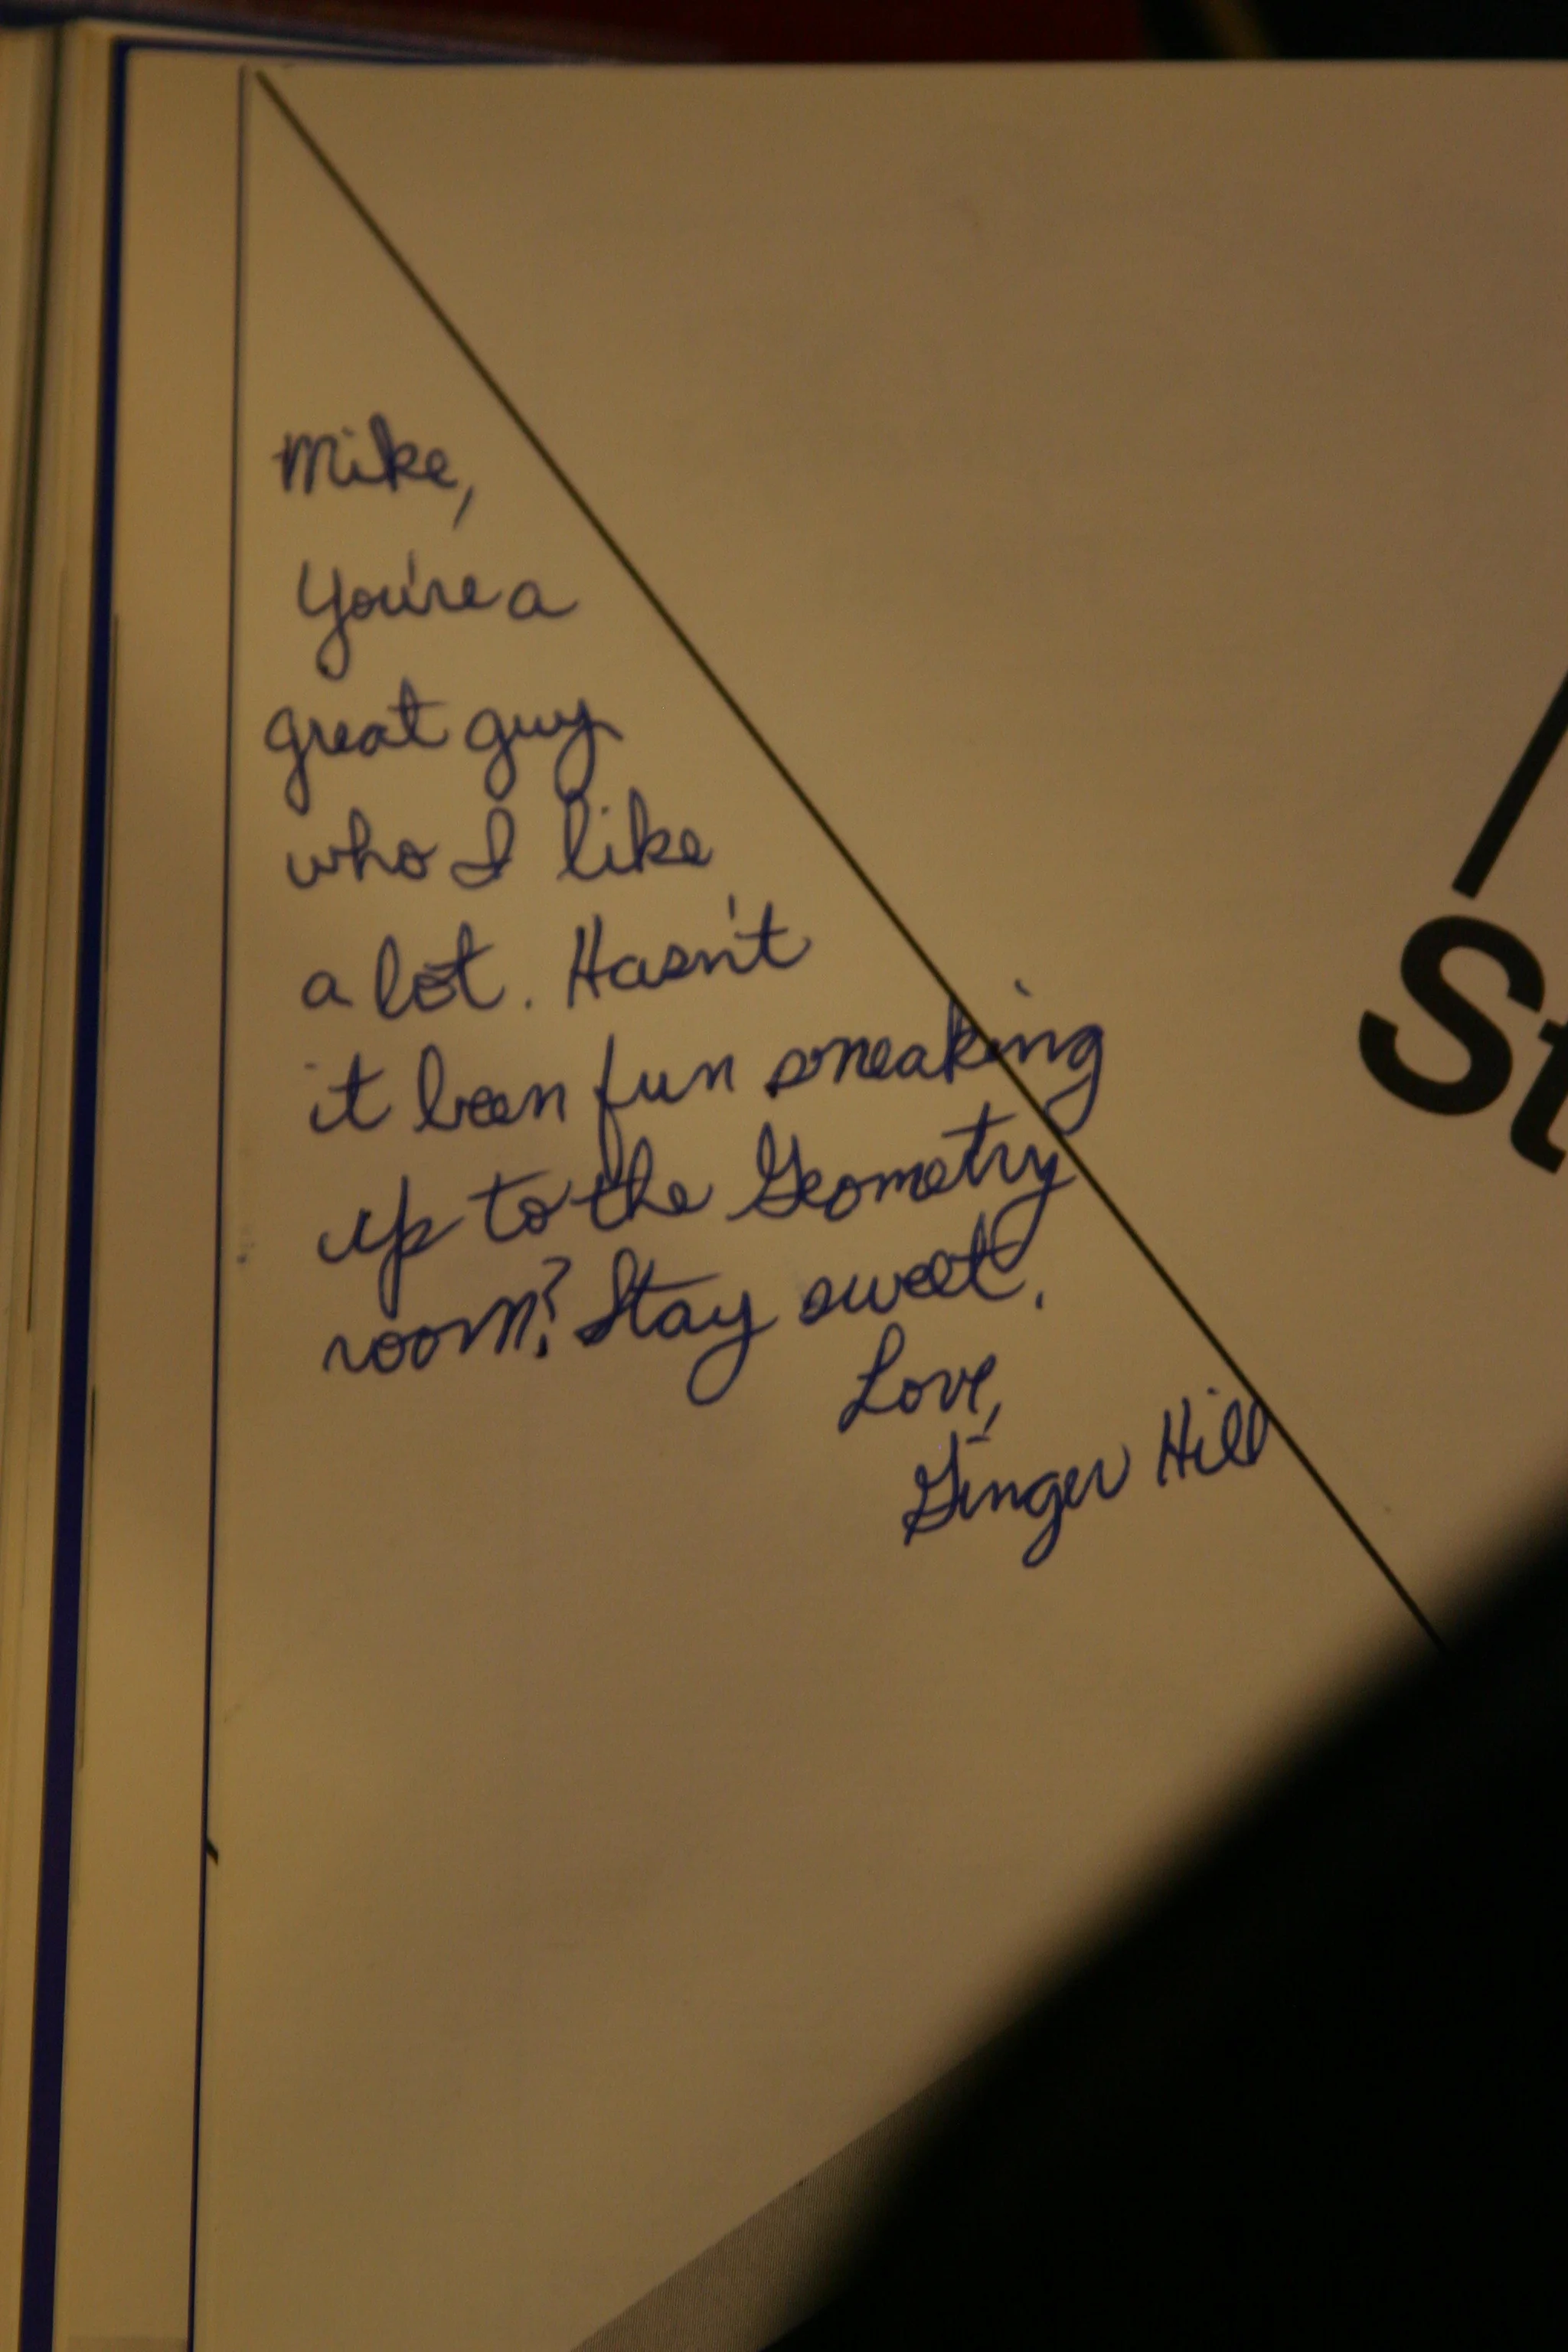 Mike,
You're a
great guy
who I like
a lot. Hasn't
it been fun sneaking
up to the Geometry
room? Stay sweet.
Love,
Ginger Hill
St